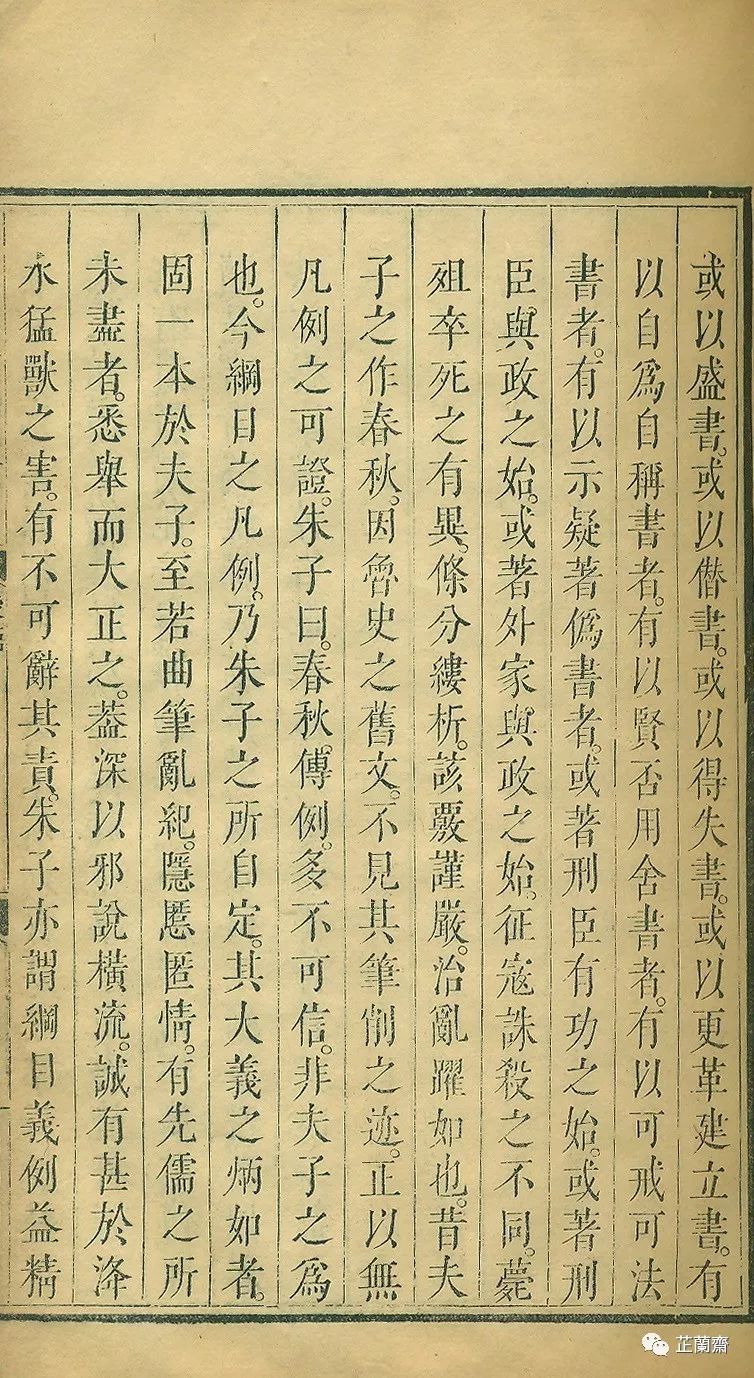 或以盛書。或以僭書。或以得失書。或以更革建立書。有
以自爲自稱書者。有以賢否用舍書者。有以可戒可法
書者。有以示疑著僞書者。或著刑臣有功之始。或著刑
臣與政之始。或著外家與政之始。征寇誅殺之不同。薨
殂卒死之有異。條分縷析。該覈謹嚴。治亂躍如也。昔夫
子之作春秋。因魯史之舊文。不見其筆削之迹。正以無
凡例之可證。朱子曰。春秋傳例。多不可信。非夫子之爲
也。今綱目之凡例。乃朱子之所自定。其大義之炳如者。
固一本於夫子。至若曲筆亂紀。隱慝匿情。有先儒之所
未盡者。悉舉而大正之。葢深以邪說橫流。誠有甚於洚
水猛獸之害。有不可辭其責。朱子亦謂綱目義例益精
芷蘭齋